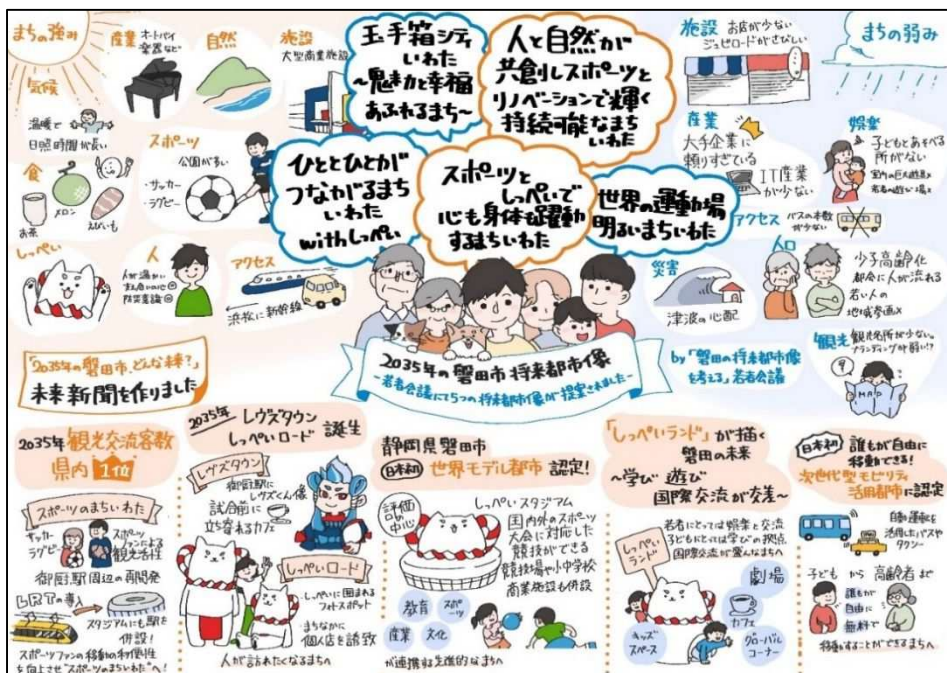 まちの強み
産業
オートバイ
楽器など
自然
施設
大型商業施設
気候
温暖で
日照時間が長い
食
メロン
お茶
えびいも
スポーツ
公園が多い
・サッカー
・ラグビー
しっぺい
人
人が温かい
防災意識
アクセス
浜松に新幹線
玉手箱シティ
いわた
〜魅力と幸福
あふれるまち〜
人と自然が
共創しスポーツと
リノベーションで輝く
持続可能なまち
いわた
ひととひとが
つながるまち
いわた
withしっぺい
スポーツと
しっぺいで
心も身体も躍動
するまちいわた
世界の運動場
明るいまちいわた
まちの弱み
施設
お店が少ない
ジュビロードがさびしい
産業
大手企業に
頼りすぎている
IT産業
が少ない
娯楽
子どもとあそべる
所がない
室内の巨大遊具×
若者の遊び場×
アクセス
バスの本数
が少ない
災害
津波の心配
人口
少子高齢化
都会に人が流れる
若い人の
地域参画×
観光
観光名所が少ない。
ブランディングが弱い!?
MAP
2035年の磐田市 将来都市像
-若者会議にて5つの将来都市像が提案されました-
by「磐田の将来都市像
を考える」若者会議
「2035年の磐田市、どんな未来?」
未来新聞を作りました
2035年 観光交流客数
県内1位
スポーツのまちいわた
サッカー
ラグビー
スポーツ
ファンによる
観光活性
御厨駅周辺の再開発
LRTの導入
スタジアムにも駅を
併設!
スポーツファンの移動の利便性
を向上させ"スポーツのまちいわた"へ!
2035年 レヴズタウン
しっぺいロード 誕生
レヴズタウン
御厨駅に
レヴズくん像
試合前に
立ち寄るカフェ
しっぺいロード
・しっぺいに囲まれる
フォトスポット
・まちなかに
個人店を誘致
人が訪れたくなるまちへ
静岡県磐田市
日本初 世界モデル都市 認定!
評価の
中心
しっぺいスタジアム
国内外のスポーツ
大会に対応した
競技ができる
競技場や小中学校
商業施設も併設
教育
スポーツ
産業
文化
が連携する先進的なまちへ
「しっぺいランド」が描く
磐田の未来
〜学び 遊び
国際交流が交差〜
しっぺい
ランド
若者にとっては娯楽と交流
子どもにとっては学びの拠点
国際交流が盛んなまちへ
劇場
カフェ
キッズ
スペース
グローバル
コーナー
日本初
誰もが自由に
移動できる!
次世代型モビリティ
活用都市に認定
自動運転を
活用したバスや
タクシー
子どもから高齢者まで
誰もが
自由に
無料で
移動することができるまちへ